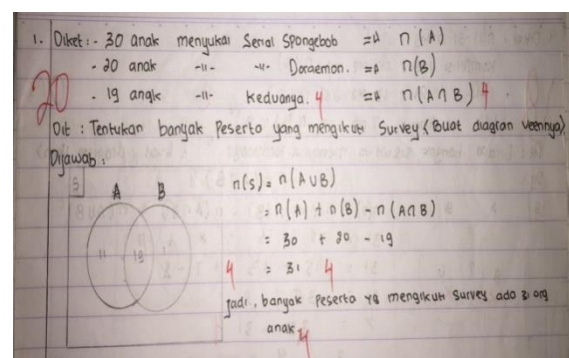 1. Diket : - 30 anak menyukai Serial Spongebob => n (A)
- 20 anak -11- -11- Doraemon. => n(B)
20 - 19 anak -11- Keduanya. 4 => n (A∩B) 4
Dit : Tentukan banyak Peserta yang mengikuti Survey (Buat diagran veennya)
Dijawab :
S A B n(s) = n(A∪B)
= n(A) + n(B) - n(A∩B)
11 19 1 = 30 + 20 - 19
4 = 31 4
Jadi, banyak Peserta yg mengikuti Survey ada 31 org
anak. 4